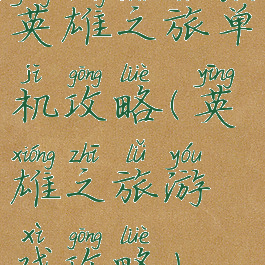 英雄之旅单
jī gōng lüè yīng
机攻略(英
xióng zhī lǚ yóu
雄之旅游
xì gōng lüè
戏攻略)